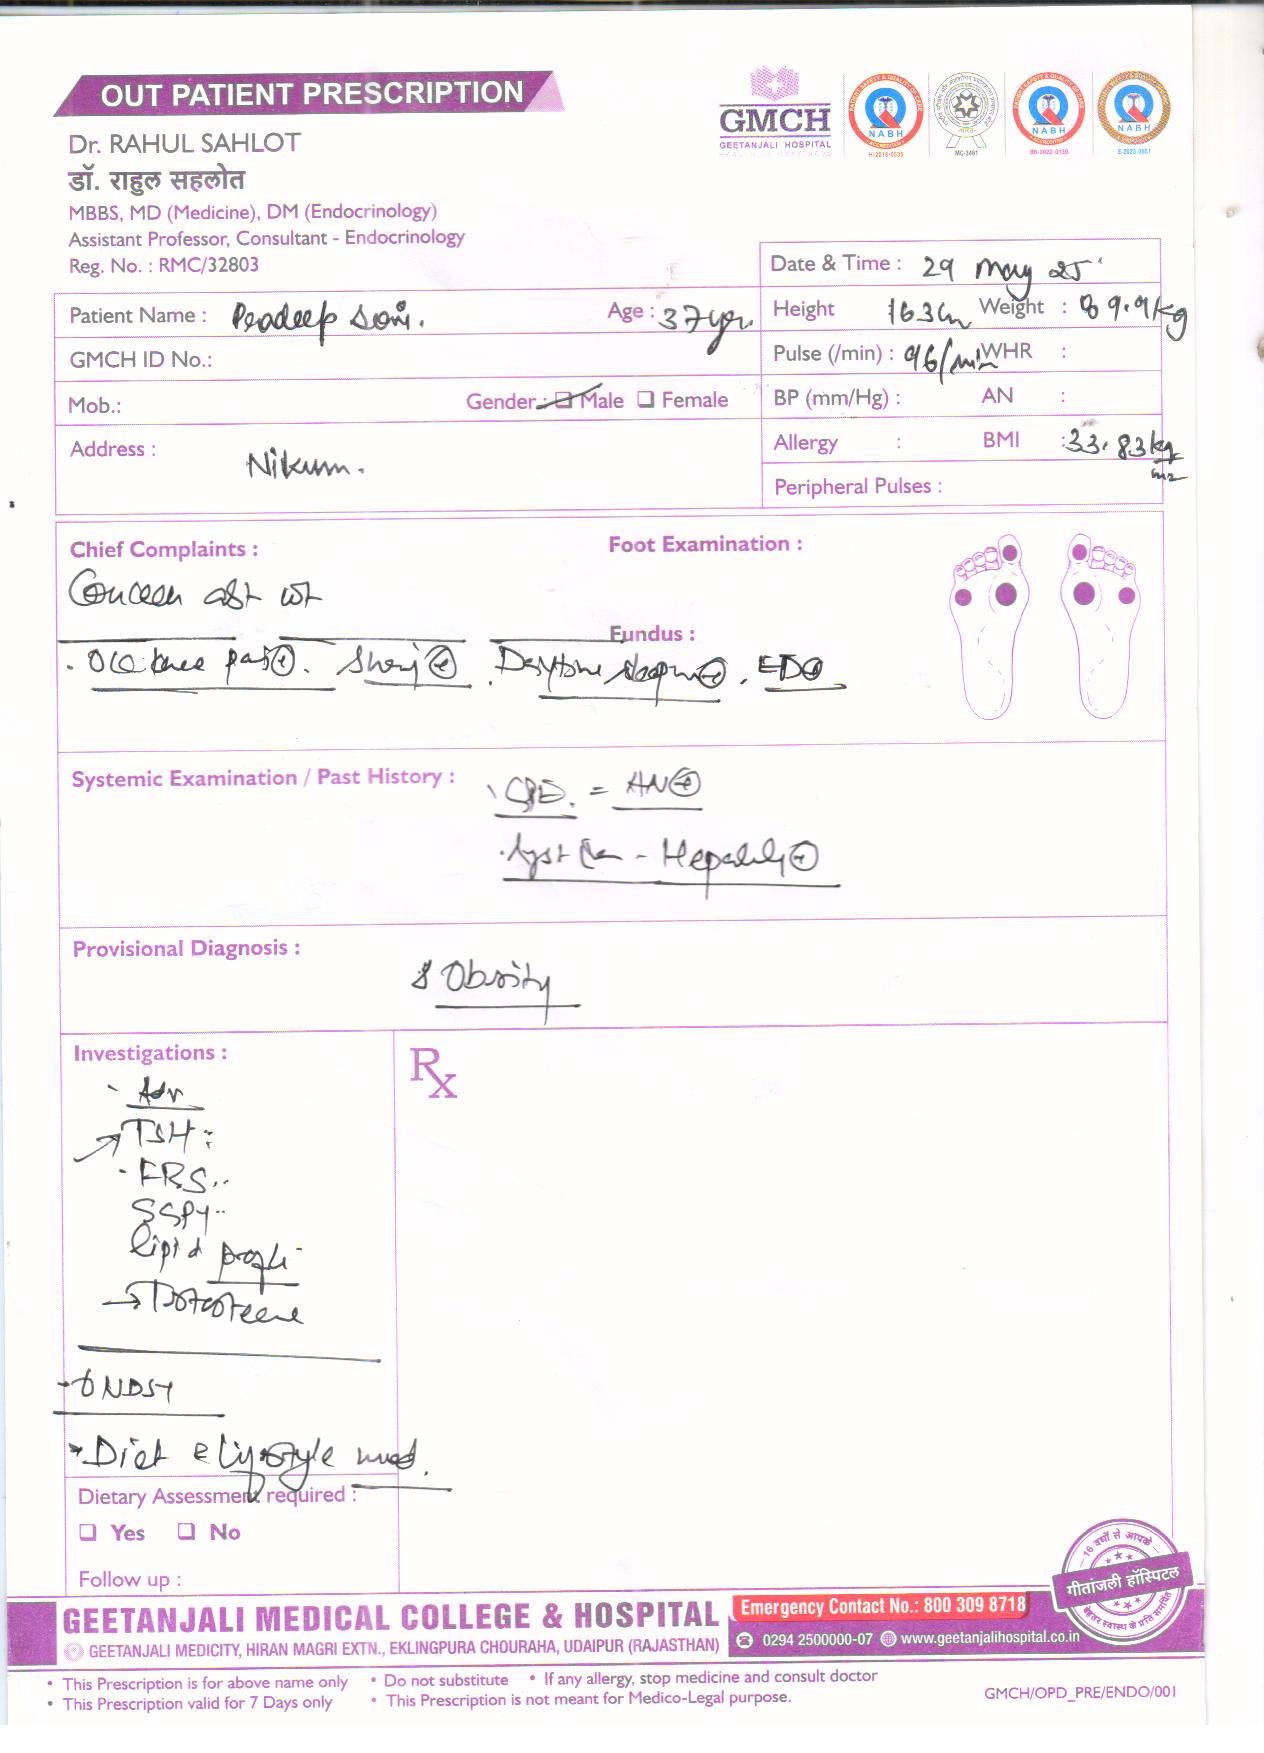 OUT PATIENT PRESCRIPTION
GMCH
GEETANJALI HOSPITAL
NABH
H-2018-0535
MC-3461
NABH
BB-2022-0130
NABH
E-2023-0051
Dr. RAHUL SAHLOT
डॉ. राहुल सहलोत
MBBS, MD (Medicine), DM (Endocrinology)
Assistant Professor, Consultant - Endocrinology
Reg. No. : RMC/32803
Date & Time : 29 May 25
Patient Name : Pradeep Soni. Age : 37 yr.
Height 163cm Weight : 89.9kg
GMCH ID No.:
Pulse (/min) : 96/min WHR :
Mob.: Gender : Male Female
BP (mm/Hg) : AN :
Address : Nikum.
Allergy : BMI : 33.83 kg/m2
Peripheral Pulses :
Chief Complaints :
Foot Examination :
Concern abt wt
Fundus :
knee pain + . + . Daytime + . ED
Systemic Examination / Past History :
GPE. = AN +
Syst -
Provisional Diagnosis :
Obesity
Investigations :
Rx
Adv
TSH :
lipid profile
→ Testosterone
Diet & Lifestyle mod.
Dietary Assessment required :
Yes No
Follow up :
16 वर्षों से आपके
गीतांजली हॉस्पिटल
बेहतर स्वास्थ के प्रति समर्पित
GEETANJALI MEDICAL COLLEGE & HOSPITAL
Emergency Contact No.: 800 309 8718
GEETANJALI MEDICITY, HIRAN MAGRI EXTN., EKLINGPURA CHOURAHA, UDAIPUR (RAJASTHAN)
0294 2500000-07 www.geetanjalihospital.co.in
• This Prescription is for above name only • Do not substitute • If any allergy, stop medicine and consult doctor
• This Prescription valid for 7 Days only • This Prescription is not meant for Medico-Legal purpose.
GMCH/OPD_PRE/ENDO/001